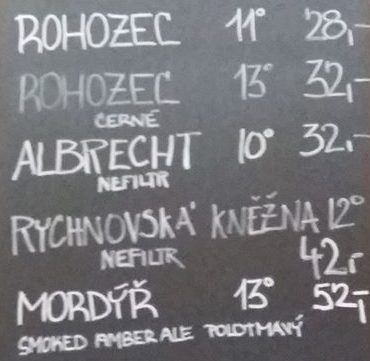 ROHOZEC 11° 28,-
ROHOZEC 13° 32,-
ČERNÉ
ALBRECHT 10° 32,-
NEFILTR
RYCHNOVSKÁ KNĚŽNA 12°
NEFILTR 42,-
MORDÝŘ 13° 52,-
SMOKED AMBER ALE POLOTMAVÝ